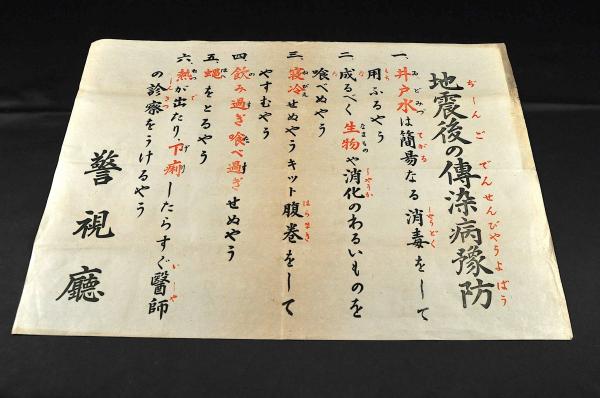 地震後の傳染病豫防
一、井戸水は簡易なる消毒をして
用ふるやう
二、成るべく生物や消化のわるいものを
喰べぬやう
三、寝冷せぬやうキット腹巻をして
やすむやう
四、飲み過ぎ喰べ過ぎせぬやう
五、蠅をとるやう
六、熱が出たり、下痢したらすぐ醫師
の診察をうけるやう
警視廳